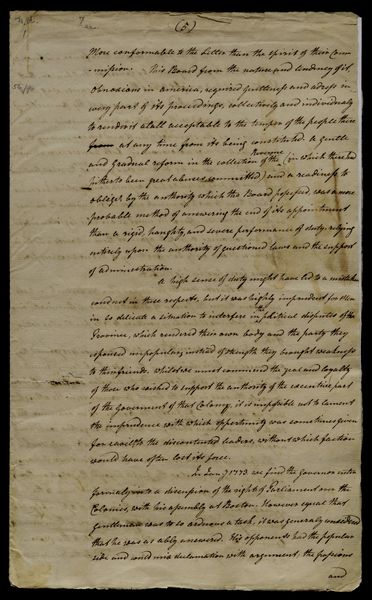 (5)
More conformable to the letter than the spirit of their Com
-mission. This Board from the nature and tendency of it,
obnoxious in america, required gentleness and adress in
every part of its proceedings, collectively and individualy
to render it at all acceptable to the temper of the people there
from at any time from its being constituted. A gentle
and gradual reform in the collection of the Revenue (in which there had
hitherto been great abuses committed) and a readiness to
oblige by the authority which the Board possessed was a more
probable method of answering the end of its appointment
than a rigid, haughty, and severe performance of duty, relying
entirely upon the authority of questioned laws and the support
of administration.
A high sense of duty might have led to a mistaken
conduct in these respects, but it was highly imprudent for Men
in so delicate a situation to interfere in the political disputes of the
Province, which rendered their own body and the party they
espoused unpopular, instead of strength they brought weakness
to their friends. Whilst we must commend the zeal and loyalty
of those who wished to support the authority of the executive part
of the Government of that Colony, it is impossible not to lament
the imprudence with which opportunity was sometimes given
for cavil to the discontented leaders, without which faction
would have often lost its force.
In Jany 1773 we find the Governor enter
formaly into a discussion of the right of Parliament over the
Colonies, with his assembly at Boston. However equal that
gentleman was to so arduous a task, it was generaly considered
that he was as ably answered. His opponents had the popular
side and could mix declamation with argument, the passions
and